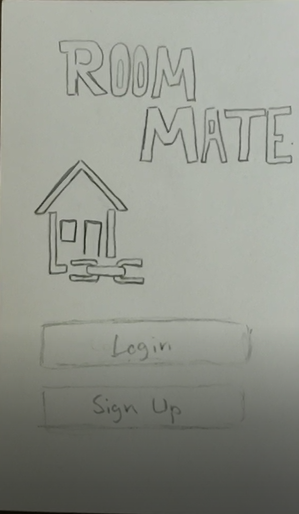 ROOM
MATE
Login
Sign Up